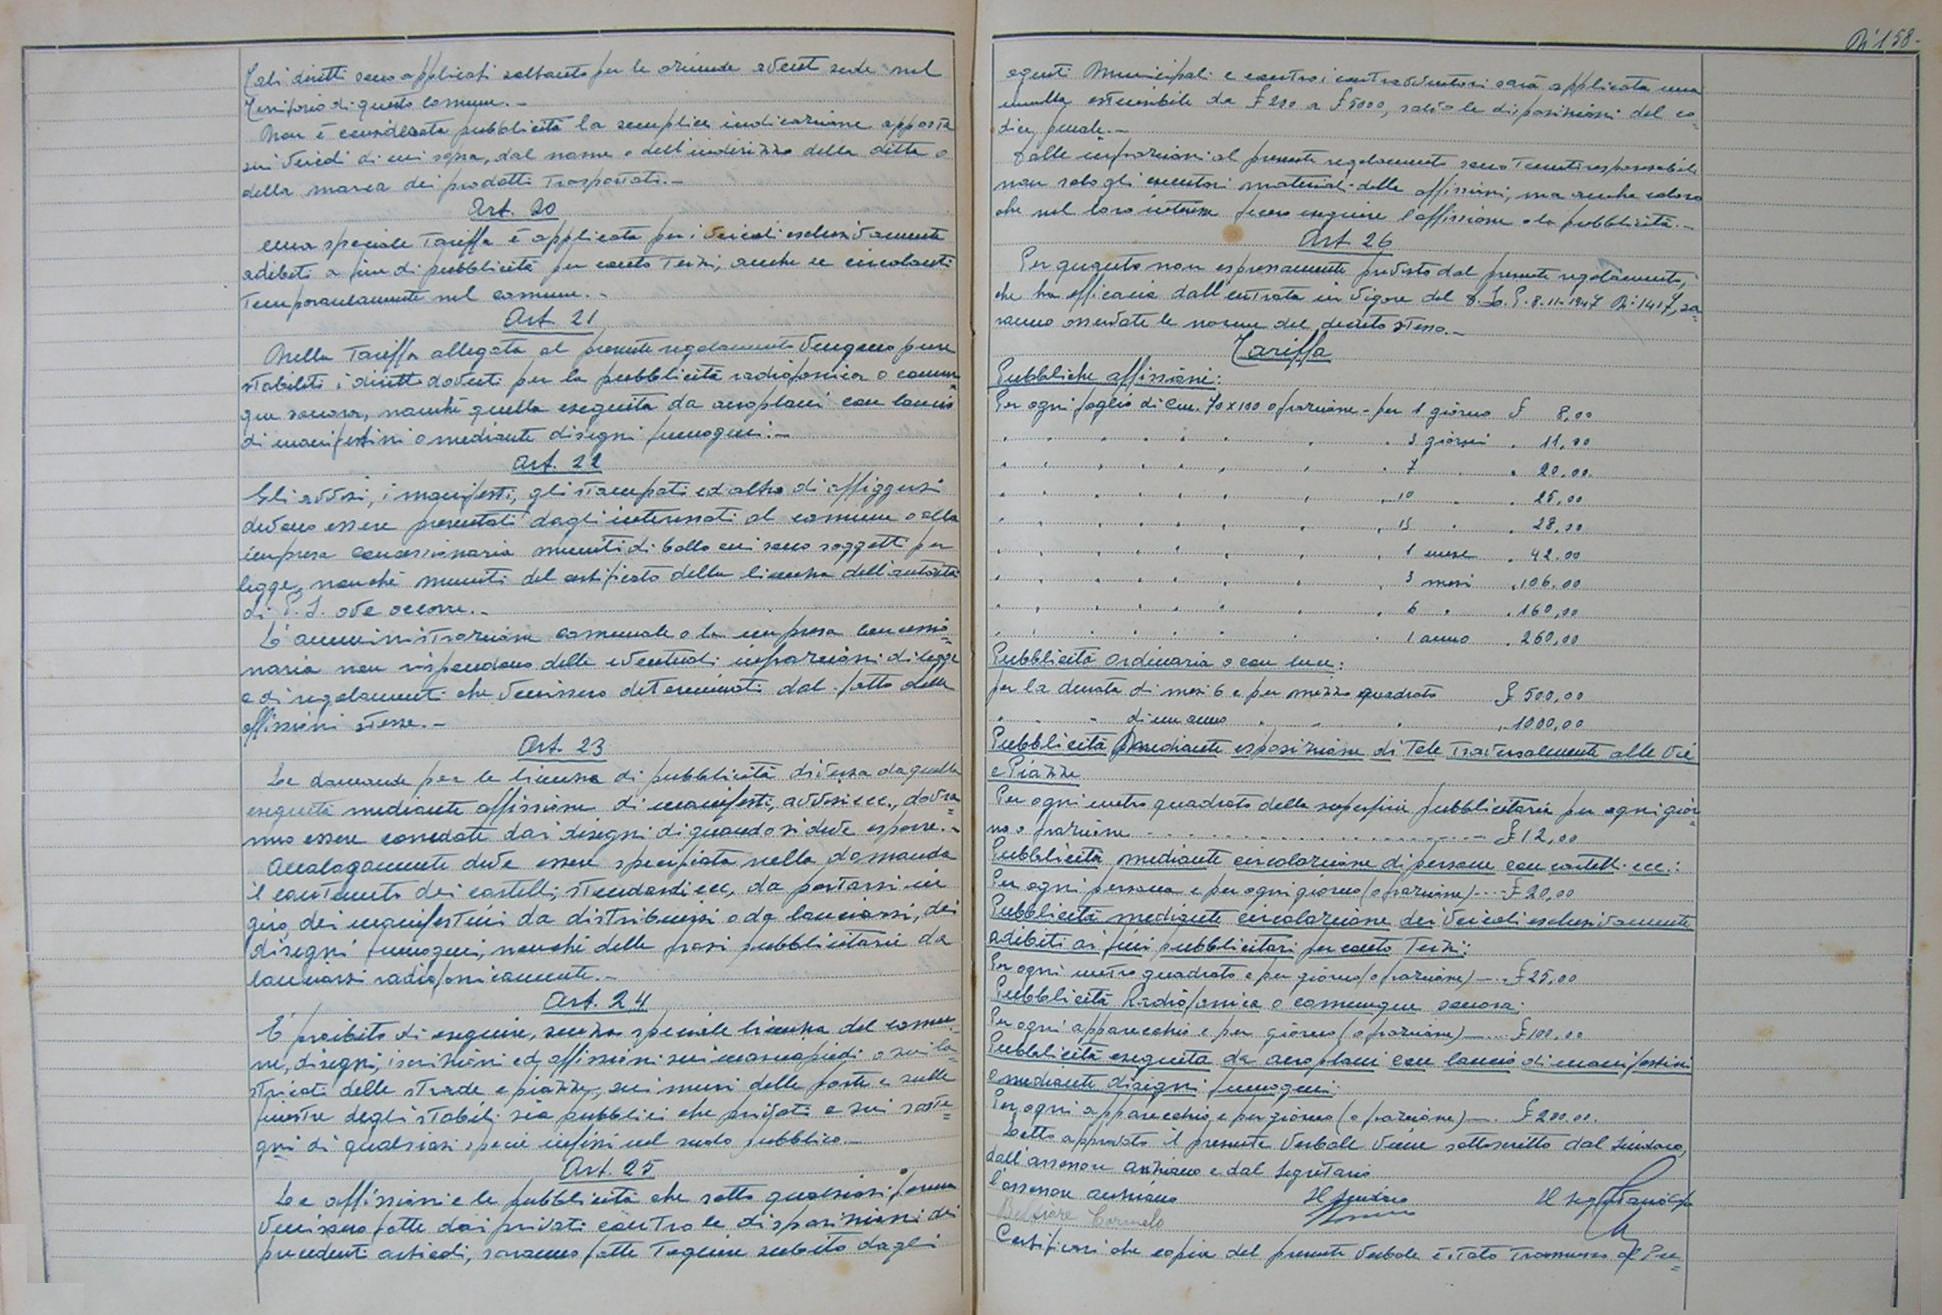 Tali diritti sono applicati soltanto per le aziende avent sede nel
Territorio di questo Comune. -
Non è considerata pubblicità la semplice indicazione apposta
sui veicoli di cui sopra, dal nome o dell'indirizzo della ditta o
della marca dei prodotti Trasportati. -
Art. 20
Una speciale Tariffa è applicata per i veicoli esclusivamente
adibiti a fini di pubblicità per conto Terzi, anche se circolanti
Temporaneamente nel comune. -
Art. 21
Nella Tariffa allegata al presente regolamento vengono pure
stabiliti i diritti dovuti per la pubblicità radiofonica o comun=
que sonora, nonché quella eseguita da aeroplani con lancio
di manifestini o mediante disegni fumogeni. -
Art. 22
Gli avvisi, i manifesti, gli stampati ed altro di affiggersi
devono essere presentati dagli interessati al comune o alla
impresa concessionaria muniti di bollo cui sono soggetti per
legge, nonché muniti del certificato della licenza dell'autorità
di P. S. ove occorre. -
L'amministrazione comunale o la impresa concessio=
naria non rispondono delle eventuali infrazioni di legge
e di regolamenti che venissero determinati dal fatto delle
affissioni stesse. -
Art. 23
Le domande per le licenze di pubblicità diversa da quella
eseguita mediante affissione di manifesti, avvisi ecc., dovra=
nno essere corredate dai disegni di quando si deve esporre. -
Analogamente deve essere specificata nella domanda
il contenuto dei cartelli, stendardi ecc, da portarsi in
giro, dei manifestini da distribuirsi o da lanciarsi, dei
disegni fumogeni, nonché delle frasi pubblicitarie da
lanciarsi radiofonicamente. -
Art. 24
E' proibito di eseguire, senza speciale licenza del comu=
ne, disegni, iscrizioni ed affissioni sui marciapiedi o sui la=
stricati delle strade e piazze, sui muri delle porte e sulle
finestre degli stabili sia pubblici che privati e sui soste=
gni di qualsiasi specie infissi nel suolo pubblico. -
Art. 25
Le affissioni e le pubblicità che sotto qualsiasi forma
venissero fatte dai privati contro le disposizioni dei
precedenti articoli, saranno fatte Togliere subito dagli
N° 158 -
agenti Municipali e contro i contravventori sarà applicata una
multa estensibile da £ 200 a £ 5000, salvo le disposizioni del co=
dice penale. -
Dalle infrazioni al presente regolamento sono Tenuti responsabili
non solo gli esecutori materiali delle affissioni, ma anche coloro
che nel loro interesse fecero eseguire l'affissione o la pubblicità. -
Art 26
Per quanto non espressamente previsto dal presente regolamento,
che ha efficacia dall'entrata in vigore del D. L. P. 8.11.1947 N: 1417, sa=
ranno osservate le norme del decreto stesso. -
Tariffa
Pubbliche affissioni:
Per ogni foglio di Cm. 70 x 100 o frazione - per 1 giorno £ 8,00
" " " " " " " " " 3 giorni " 11,00
" " " " " " " " " 7 " " 20,00
" " " " " " " " " 10 " " 25,00
" " " " " " " " " 15 " " 28,00
" " " " " " " " " 1 mese " 42,00
" " " " " " " " " 3 mesi " 106,00
" " " " " " " " " 6 " " 160,00
" " " " " " " " " 1 anno " 260,00
Pubblicità Ordinaria o con luce:
per la durata di mesi 6 e per mezzo quadrato £ 500,00
" " " di un anno " " " " 1000,00
Pubblicità mediante esposizione di Tele Traversalmente alle Vie
e Piazze
Per ogni metro quadrato della superficie pubblicitaria per ogni gior=
no o frazione - - - - - £ 12,00
Pubblicità mediante circolazione di persone con cartelli ecc.:
Per ogni persona e per ogni giorno (o frazione) - - - £ 20,00
Pubblicità mediante circolazione dei veicoli esclusivamente
adibiti ai fini pubblicitari per conto Terzi:
Per ogni metro quadrato e per giorno (o frazione) - - £ 25,00
Pubblicità Radiofonica o comunque sonora:
Per ogni apparecchio e per giorno (o frazione) - - £ 100,00
Pubblicità eseguita da aeroplani con lancio di manifestini
o mediante disegni fumogeni:
Per ogni apparecchio e per giorno (o frazione) - £ 200,00.
Letto approvato il presente verbale viene sottoscritto dal Sindaco,
dall'assessore anziano e dal Segretario
l'assessore anziano Il Sindaco Il Segretario
Carmelo
Certificasi che copia del presente verbale è stato Trasmesso al Pre=